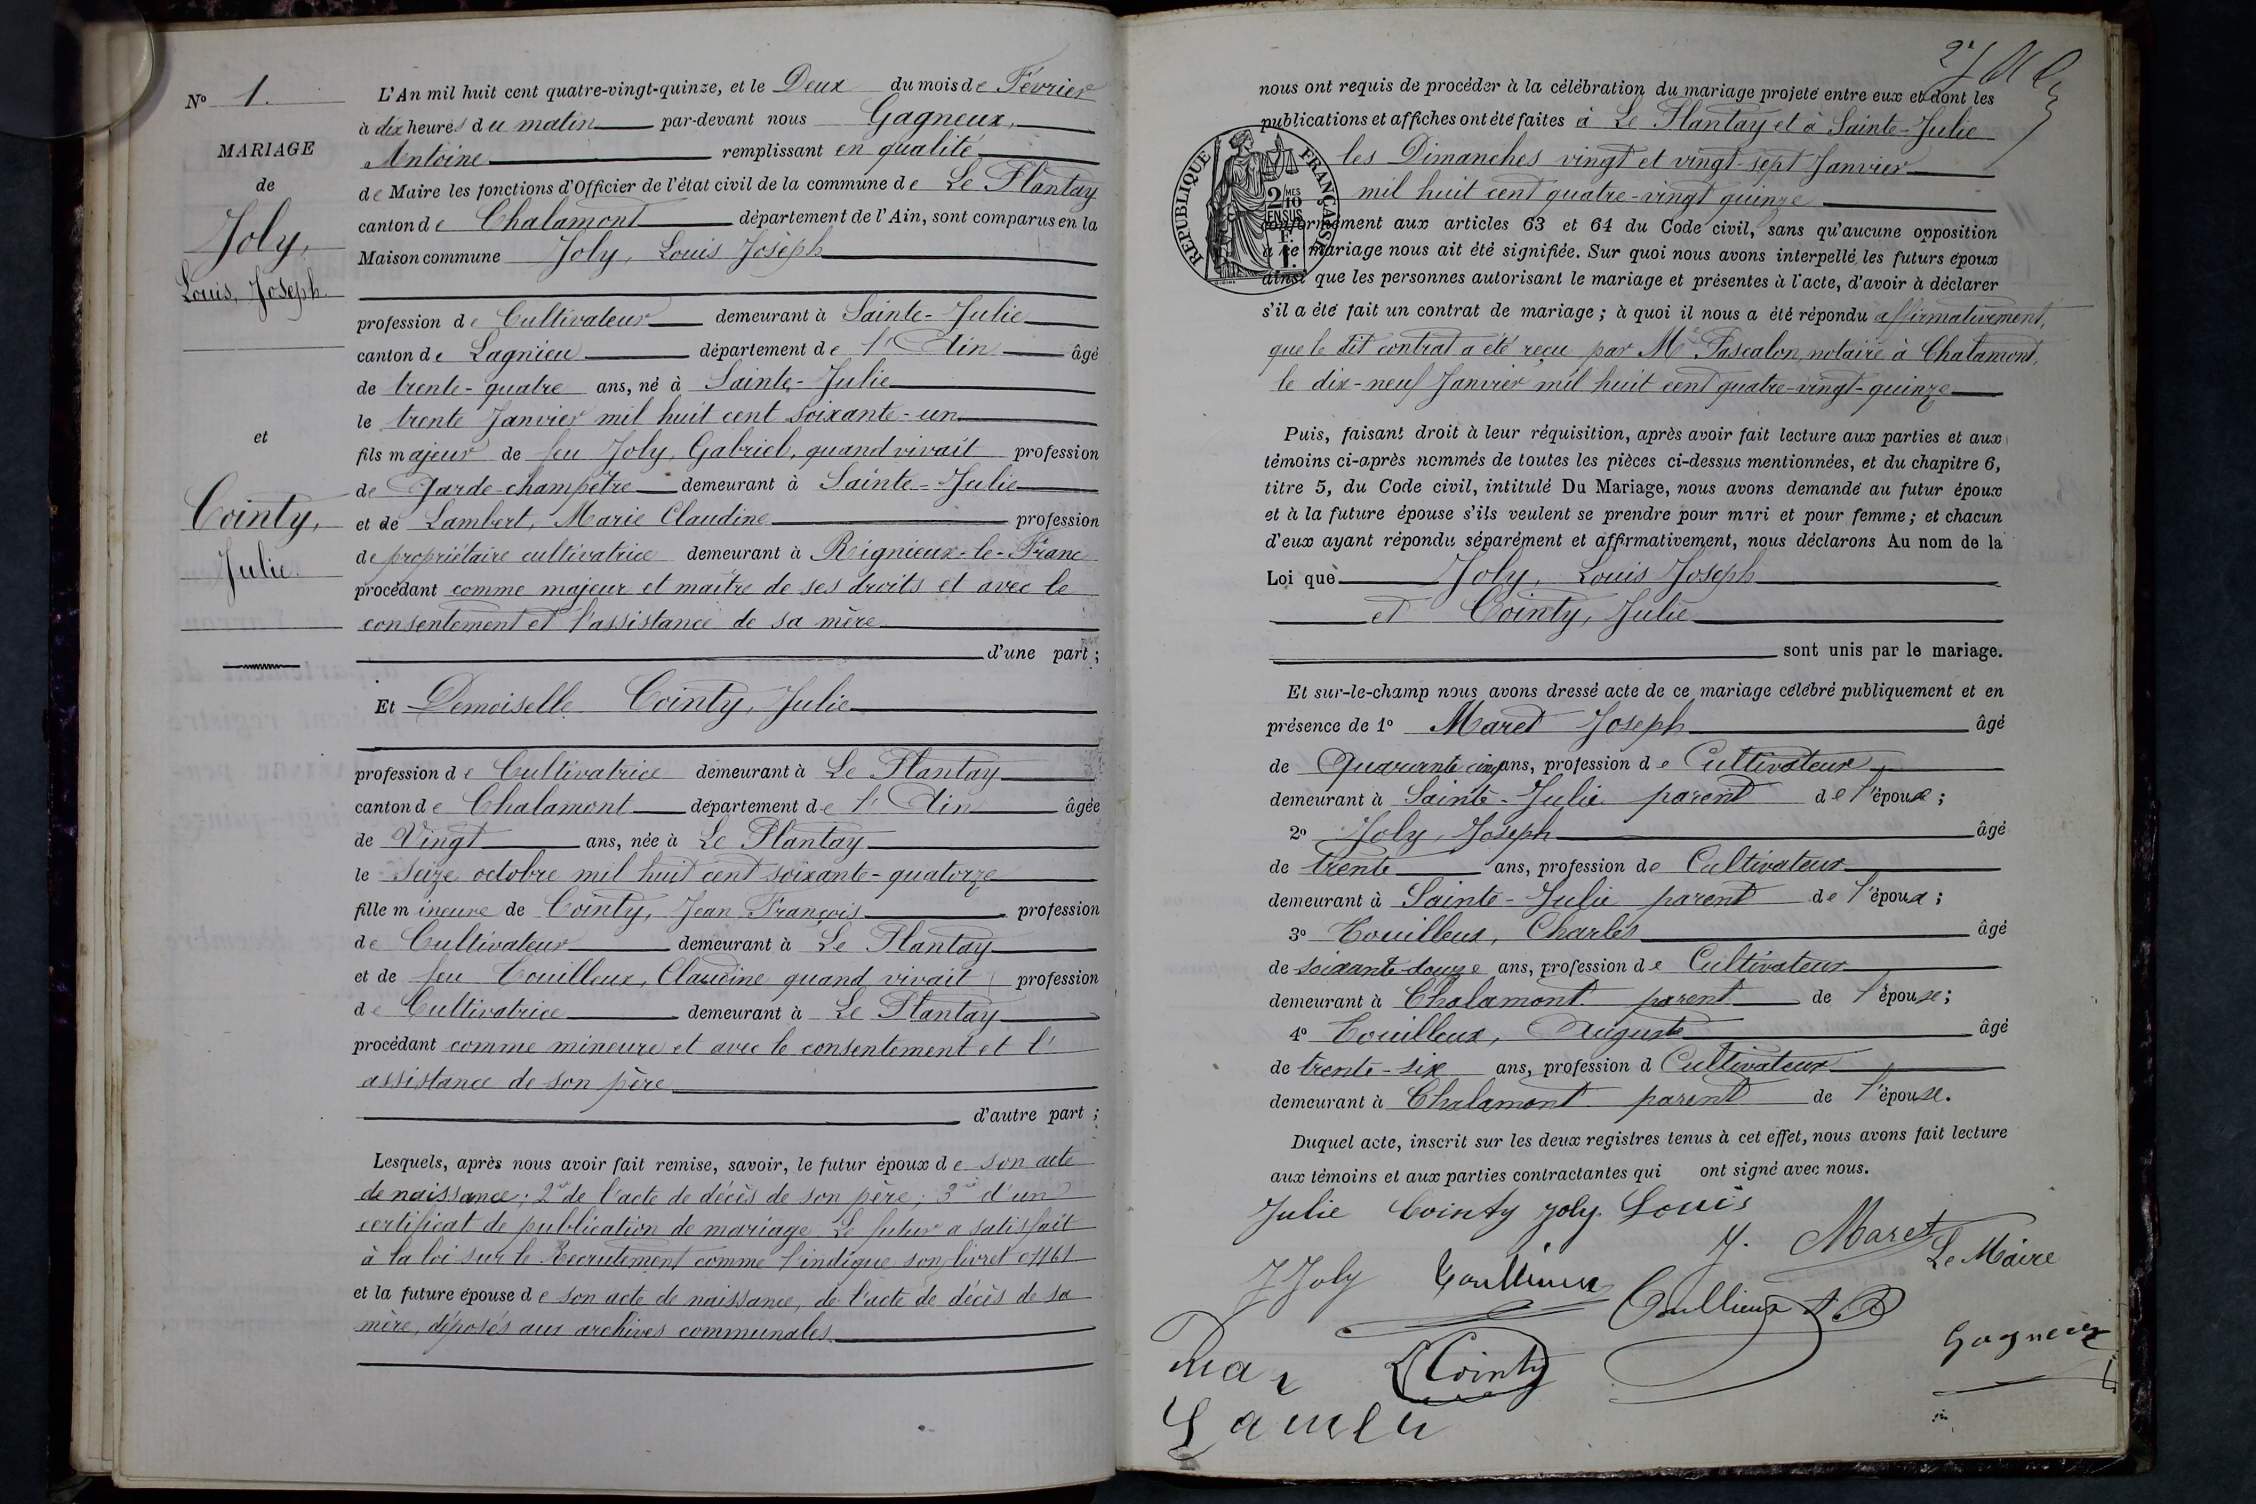 N° 1.
MARIAGE
de
Joly,
Louis, Joseph.
et
Cointy,
Julie.
L'An mil huit cent quatre-vingt-quinze, et le Deux du mois de Février
à dix heures du matin par-devant nous Gagneux,
Antoine remplissant en qualité
de Maire les fonctions d'Officier de l'état civil de la commune de Le Plantay
canton de Chalamont département de l'Ain, sont comparus en la
Maison commune Joly, Louis Joseph
profession de Cultivateur demeurant à Sainte-Julie
canton de Lagnieu département de l'Ain âgé
de trente-quatre ans, né à Sainte-Julie
le trente Janvier mil huit cent soixante-un
fils majeur de feu Joly, Gabriel, quand vivait profession
de Garde-champêtre demeurant à Sainte-Julie
et de Lambert, Marie Claudine profession
de propriétaire cultivatrice demeurant à Rignieux-le-Franc
procédant comme majeur et maître de ses droits et avec le
consentement et l'assistance de sa mère
d'une part;
Et Demoiselle Cointy, Julie
profession de Cultivatrice demeurant à Le Plantay
canton de Chalamont département de l'Ain âgée
de Vingt ans, née à Le Plantay
le Seize octobre mil huit cent soixante-quatorze
fille mineure de Cointy, Jean François profession
de Cultivateur demeurant à Le Plantay
et de feu Couilleux, Claudine quand vivait profession
de Cultivatrice demeurant à Le Plantay
procédant comme mineure et avec le consentement et l'
assistance de son père
d'autre part;
Lesquels, après nous avoir fait remise, savoir, le futur époux de son acte
de naissance; 2° de l'acte de décès de son père; 3° d'un
certificat de publication de mariage. Le futur a satisfait
à la loi sur le Recrutement comme l'indique son livret
et la future épouse de son acte de naissance, de l'acte de décès de sa
mère, déposés aux archives communales.
nous ont requis de procéder à la célébration du mariage projeté entre eux et dont les
publications et affiches ont été faites à Le Plantay et à Sainte-Julie
les Dimanches vingt et vingt-sept Janvier
mil huit cent quatre-vingt quinze
RÉPUBLIQUE FRANÇAISE
conformément aux articles 63 et 64 du Code civil, sans qu'aucune opposition
à ce mariage nous ait été signifiée. Sur quoi nous avons interpellé, les futurs époux
ainsi que les personnes autorisant le mariage et présentes à l'acte, d'avoir à déclarer
s'il a été fait un contrat de mariage; à quoi il nous a été répondu affirmativement,
que le dit contrat a été reçu par Me Pascalon, notaire à Chalamont,
le dix-neuf Janvier mil huit cent quatre-vingt-quinze
Puis, faisant droit à leur réquisition, après avoir fait lecture aux parties et aux
témoins ci-après nommés de toutes les pièces ci-dessus mentionnées, et du chapitre 6,
titre 5, du Code civil, intitulé Du Mariage, nous avons demandé au futur époux
et à la future épouse s'ils veulent se prendre pour mari et pour femme; et chacun
d'eux ayant répondu séparément et affirmativement, nous déclarons Au nom de la
Loi que Joly, Louis Joseph
et Cointy, Julie
sont unis par le mariage.
Et sur-le-champ nous avons dressé acte de ce mariage célébré publiquement et en
présence de 1° Maret Joseph âgé
de Quarante cinq ans, profession de Cultivateur
demeurant à Sainte-Julie parent de l'époux;
2° Joly, Joseph âgé
de trente ans, profession de Cultivateur
demeurant à Sainte-Julie parent de l'époux;
3° Couilleux, Charles âgé
de soixante-douze ans, profession de Cultivateur
demeurant à Chalamont parent de l'épouse;
4° Couilleux, Auguste âgé
de trente-six ans, profession d Cultivateur
demeurant à Chalamont parent de l'épouse.
Duquel acte, inscrit sur les deux registres tenus à cet effet, nous avons fait lecture
aux témoins et aux parties contractantes qui ont signé avec nous.
Julie Cointy Joly Louis
J. Maret
Le Maire
J Joly Coullieux
Coullieux
Gagneux
Cointy